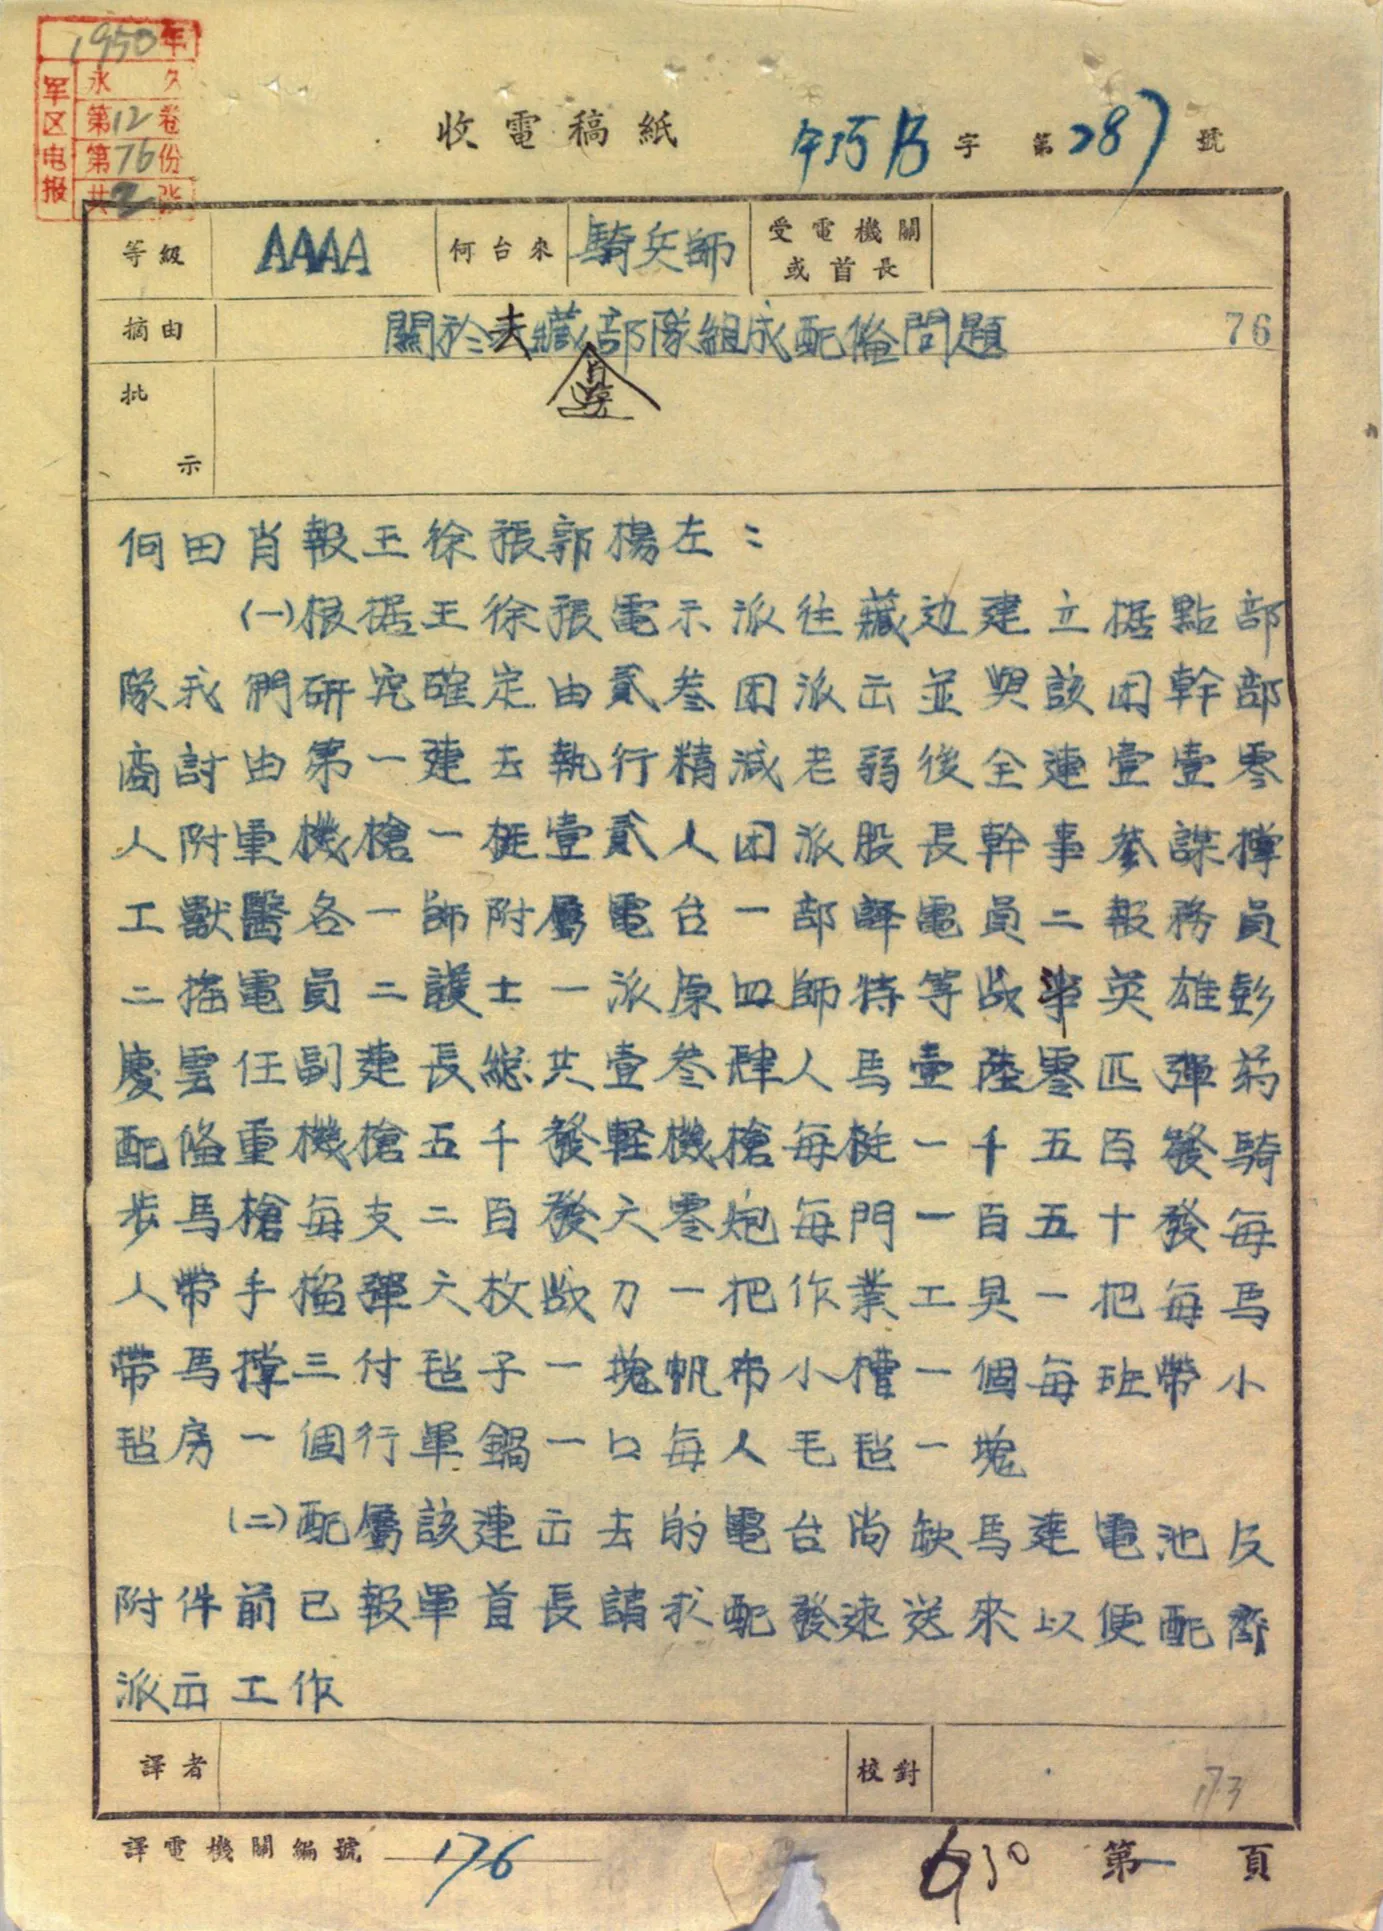 1950年
永久
军区电报
第12卷
第76份
共2张
收電稿紙
午巧 字 第287號
等級 AAAA 何台來 騎兵師 受電機關或首長
摘由 關於去藏部隊組成配俻問題 76
批示
何田肖報王徐張郭楊左：
(一)根据王徐張電示派往藏边建立据點部
隊我們研究確定由貳叁团派出並與該团幹部
商討由第一連去執行精减老弱後全連壹壹零
人附重機槍一挺壹貳人团派股長幹事叅謀撑
工獸醫各一師附屬電台一部譯電員二報務員
二摇電員二護士一派原四師特等战斗英雄彭
慶雲任副連長總共壹叁肆人馬壹陸零匹彈葯
配俻重機槍五千發軽機槍每挺一千五百發騎
步馬槍每支二百發六零炮每門一百五十發每
人帶手榴彈六枚战刀一把作業工具一把每馬
帶馬撑三付毡子一塊帆布小槽一個每班帶小
毡房一個行軍鍋一口每人毛毡一塊
(二)配屬該連出去的電台尚缺馬達電池反
附件前已報軍首長請求配發速送來以便配齊
派出工作
譯者 校對 173
譯電機關編號 176 630 第一頁